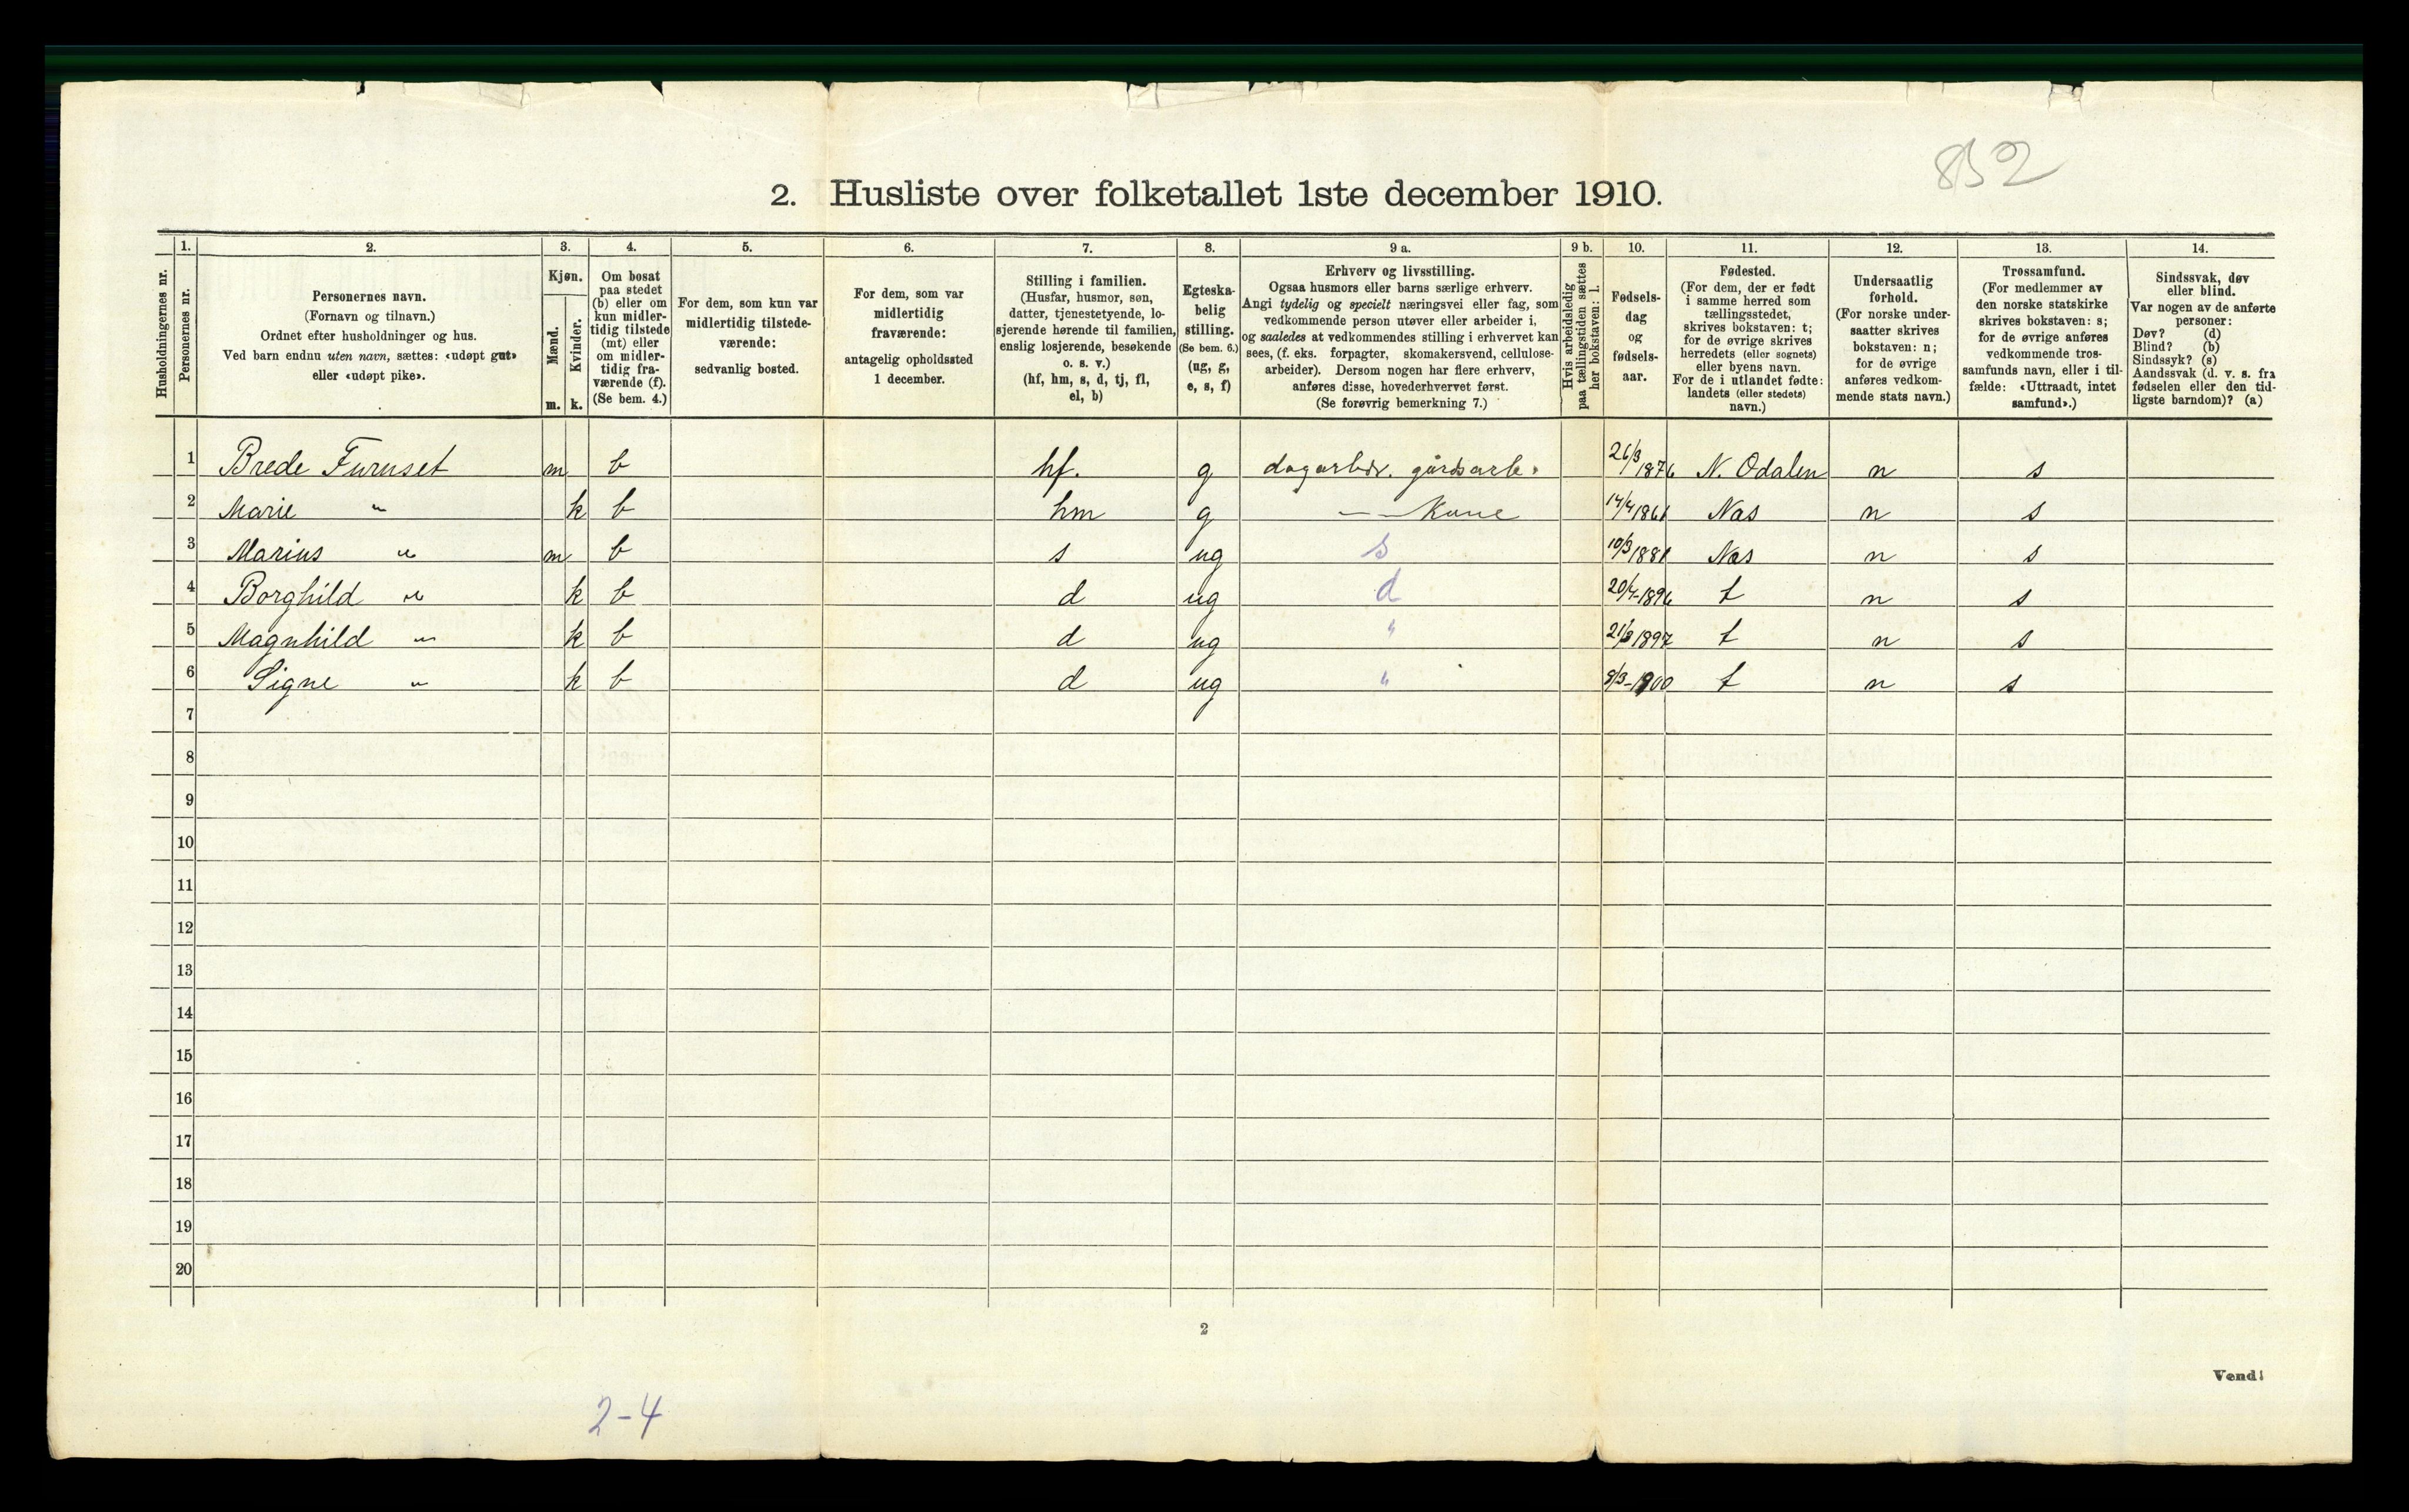 852
2. Husliste over folketallet 1ste december 1910.
Husholdningernes nr.
1.
Personernes nr.
2.
Personernes navn.
(Fornavn og tilnavn.)
Ordnet efter husholdninger og hus.
Ved barn endnu uten navn, sættes: «udøpt gut»
eller «udøpt pike».
3.
Kjøn.
Mænd.
m.
Kvinder.
k.
4.
Om bosat
paa stedet
(b) eller om
kun midler-
tidig tilstede
(mt) eller
om midler-
tidig fra-
værende (f).
(Se bem. 4.)
5.
For dem, som kun var
midlertidig tilstede-
værende:
sedvanlig bosted.
6.
For dem, som var
midlertidig
fraværende:
antagelig opholdssted
1 december.
7.
Stilling i familien.
(Husfar, husmor, søn,
datter, tjenestetyende, lo-
sjerende hørende til familien,
enslig losjerende, besøkende
o. s. v.)
(hf, hm, s, d, tj, fl,
el, b)
8.
Egteska-
belig
stilling.
(Se bem. 6.)
(ug, g,
e, s, f)
9 a.
Erhverv og livsstilling.
Ogsaa husmors eller barns særlige erhverv.
Angi tydelig og specielt næringsvei eller fag, som
vedkommende person utøver eller arbeider i,
og saaledes at vedkommendes stilling i erhvervet kan
sees, (f. eks. forpagter, skomakersvend, cellulose-
arbeider). Dersom nogen har flere erhverv,
anføres disse, hovederhvervet først.
(Se forøvrig bemerkning 7.)
9 b.
Hvis arbeidsledig
paa tællingstiden sættes
her bokstaven: l.
10.
Fødsels-
dag
og
fødsels-
aar.
11.
Fødested.
(For dem, der er født
i samme herred som
tællingsstedet,
skrives bokstaven: t;
for de øvrige skrives
herredets (eller sognets)
eller byens navn.
For de i utlandet fødte:
landets (eller stedets)
navn.)
12.
Undersaatlig
forhold.
(For norske under-
saatter skrives
bokstaven: n;
for de øvrige
anføres vedkom-
mende stats navn.)
13.
Trossamfund.
(For medlemmer av
den norske statskirke
skrives bokstaven: s;
for de øvrige anføres
vedkommende tros-
samfunds navn, eller i til-
fælde: «Uttraadt, intet
samfund».)
14.
Sindssvak, døv
eller blind.
Var nogen av de anførte
personer:
Døv? (d)
Blind? (b)
Sindssyk? (s)
Aandssvak (d. v. s. fra
fødselen eller den tid-
ligste barndom)? (a)
1 Brede Furuset m b hf. g dagarbdr. gårdsarb. 26/3 1876 N. Odalen n s
2 Marie " k b hm g — — Kone 14/4 1861 Nas n s
3 Marius " m b s ug s 10/3 1881 Næs n s
4 Borghild " k b d ug d 20/4-1896 t n s
5 Magnhild " k b d ug " 1897 t n s
6 Signe " k b d ug " 8/3-1900 t n s
7
8
9
10
11
12
13
14
15
16
17
18
19
20
2
Vend!
2-4